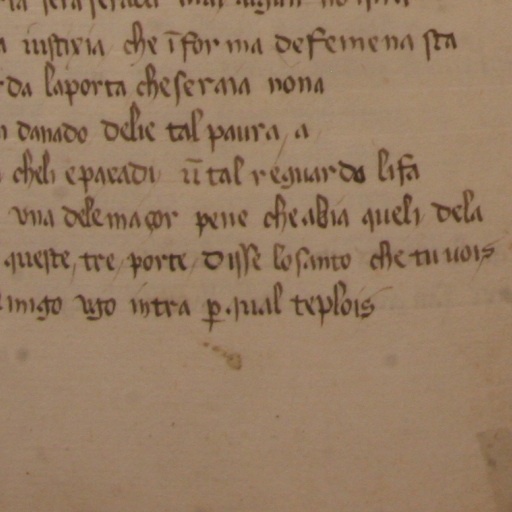 iustixia che ī forma de femena sta
da la porta che seraia nona
danado delie tal paura, a
cheli epacadi ū tal reguardo li fa
vna dele maçor pene che abia queli dela
queste, tre, porte, disse lo santo che tu uois
migo vgo intra ꝑ qual te plois